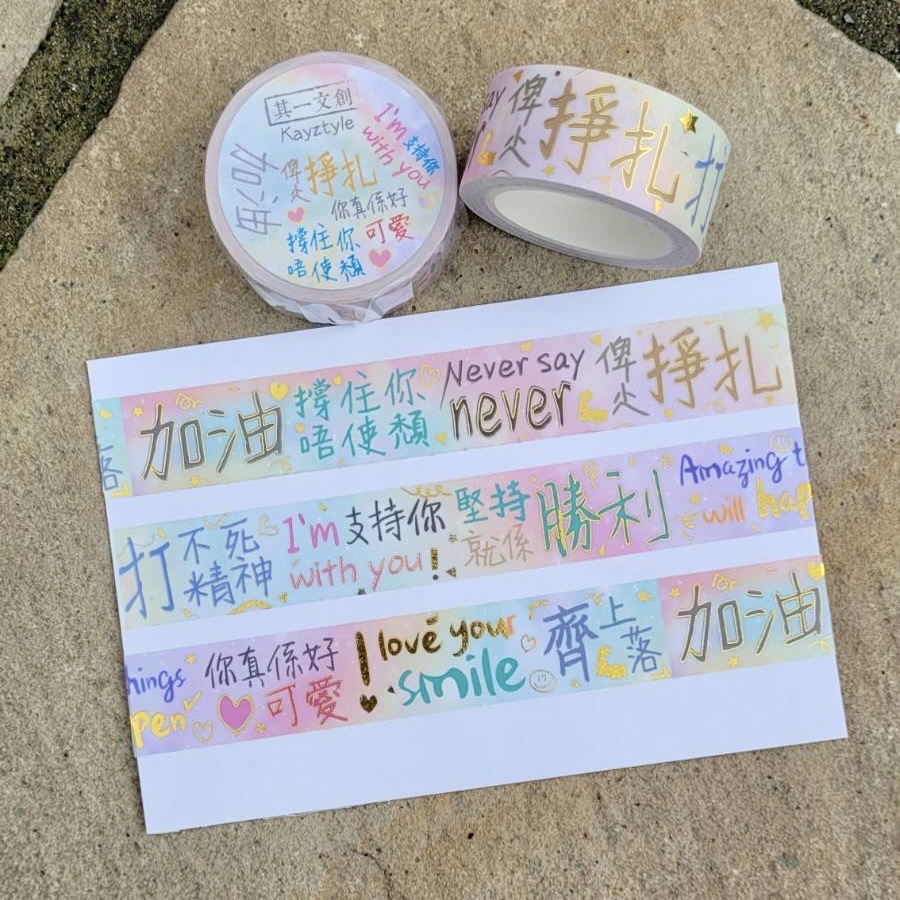 其一文創
Kayztyle
I'm 支持你
with you
加油
俾尐掙扎
你真係好
可愛
撐住你
唔使頹
say 俾尐掙扎 打
落 加油 撐住你 Never say 俾尐掙扎
唔使頹 never
打不死 I'm 支持你 堅持 勝利 Amazing t
精神 with you! 就係 will hap
hings 你真係好 I love your 齊上落 加油
pen 可愛 smile